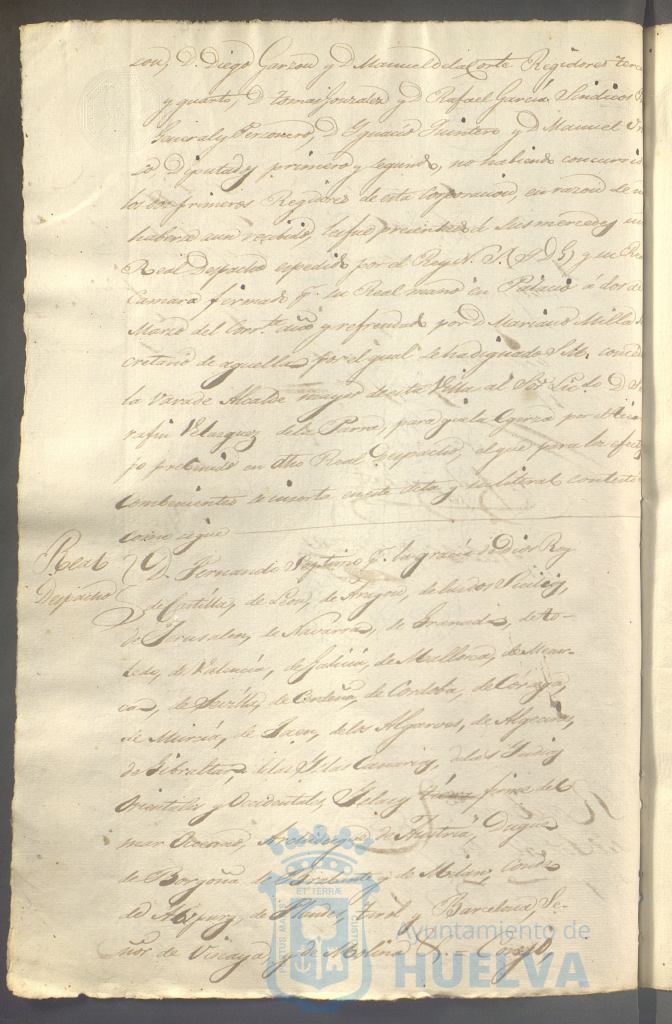 con, D. Diego Garzon y D. Manuel de la Corte Regidores terce
y quarto, D. Tomas Gonzalez y D. Rafael Garcia, Sindicos
General y Personero, D. Ygnacio Quintero y D. Manuel
Diputados primero y segundo, no habiendo concurrido
los dos primeros Regidores de esta Corporacion, en razon de
haberse aun recibido, le fue presentado á sus mercedes un
Real Despacho espedido por el Rey N. S. (Q. D. G.) y su Rl
Camara firmado pr. su Real mano en Palacio á dos de
Marzo del Corrte. año y refrendado por D. Mariano Milla
cretario de aquella, por el qual se ha dignado S.M. conce
la Vara de Alcalde mayor de esta Villa al Sor. Licdo. D. Se
rafin Velazquez de la Parra, para que la egerza por el tiem
po prebenido en dho Real Despacho, el que para los efectos
combenientes se inserta en este acta, y su literal contesto
como sigue
Real Despacho
D. Fernando Septimo pr. la gracia de Dios Rey
de Castilla, de Leon, de Aragon, de las dos Sicilias,
de Jerusalen, de Navarra, de Granada, de To-
ledo, de Valencia, de Galicia, de Mallorca, de Menor-
ca, de Sevilla, de Cerdeña, de Cordoba, de Corcega,
de Murcia, de Jaen, de los Algarves, de Algeciras,
de Gibraltar, de las Yslas Canarias, de las Yndias
Orientales y Occidentales, Yslas y tierra firme del
mar Occeano, Archiduque de Austria, Duque
de Borgoña, de Brabante y de Milan, Conde
de Abspurg, de Flandes, Tirol y Barcelona, Se-
ñor de Vizcaya y de Molina &. = Consejo,
Ayuntamiento de
HUELVA